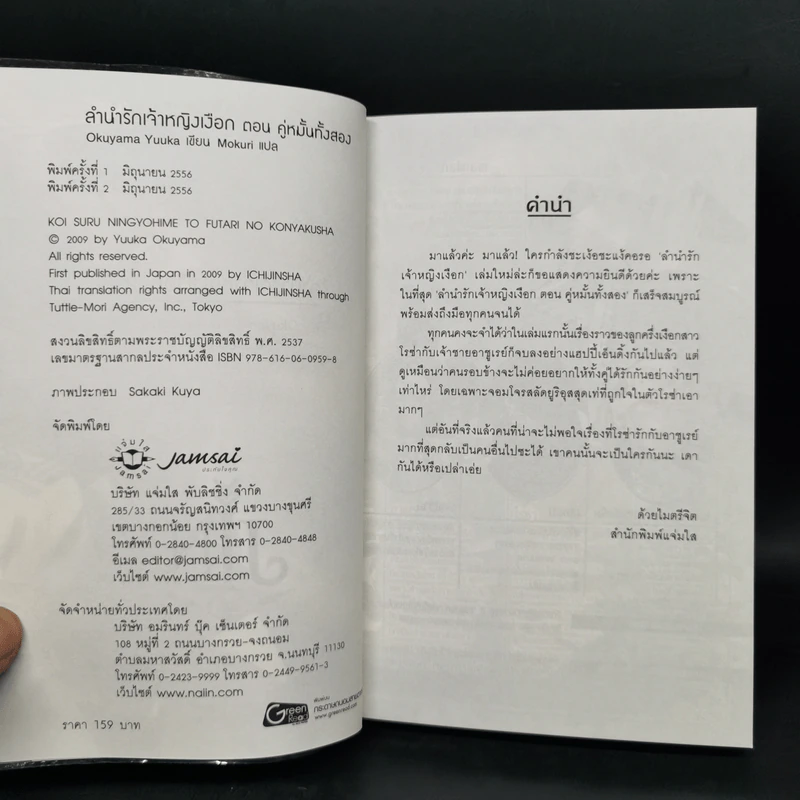 ลำนำรักเจ้าหญิงเงือก ตอน คู่หมั้นทั้งสอง
Okuyama Yuuka เขียน Mokuri แปล
พิมพ์ครั้งที่ 1 มิถุนายน 2556
พิมพ์ครั้งที่ 2 มิถุนายน 2556
KOI SURU NINGYOHIME TO FUTARI NO KONYAKUSHA
© 2009 by Yuuka Okuyama
All rights reserved.
First published in Japan in 2009 by ICHIJINSHA
Thai translation rights arranged with ICHIJINSHA through
Tuttle-Mori Agency, Inc., Tokyo
สงวนลิขสิทธิ์ตามพระราชบัญญัติลิขสิทธิ์ พ.ศ. 2537
เลขมาตรฐานสากลประจำหนังสือ ISBN 978-616-06-0959-8
ภาพประกอบ Sakaki Kuya
จัดพิมพ์โดย
แจ่มใส
Jamsai
jamsai
บริษัท แจ่มใส พับลิชชิ่ง จำกัด
285/33 ถนนจรัญสนิทวงศ์ แขวงบางขุนศรี
เขตบางกอกน้อย กรุงเทพฯ 10700
โทรศัพท์ 0-2840-4800 โทรสาร 0-2840-4848
อีเมล editor@jamsai.com
เว็บไซต์ www.jamsai.com
จัดจำหน่ายทั่วประเทศโดย
บริษัท อมรินทร์ บุ๊ค เซ็นเตอร์ จำกัด
108 หมู่ที่ 2 ถนนบางกรวย-จงถนอม
ตำบลมหาสวัสดิ์ อำเภอบางกรวย จ.นนทบุรี 11130
โทรศัพท์ 0-2423-9999 โทรสาร 0-2449-9561-3
เว็บไซต์ www.naiin.com
Green Read
กระดาษถนอมสายตา
www.greenread.com
ราคา 159 บาท
คำนำ
มาแล้วค่ะ มาแล้ว! ใครกำลังชะเง้อชะแง้คอรอ ‘ลำนำรัก
เจ้าหญิงเงือก’ เล่มใหม่ล่ะก็ขอแสดงความยินดีด้วยค่ะ เพราะ
ในที่สุด ‘ลำนำรักเจ้าหญิงเงือก ตอน คู่หมั้นทั้งสอง’ ก็เสร็จสมบูรณ์
พร้อมส่งถึงมือทุกคนจนได้
ทุกคนคงจะจำได้ว่าในเล่มแรกนั้นเรื่องราวของลูกครึ่งเงือกสาว
โรซ่ากับเจ้าชายอาซูเรย์ก็จบลงอย่างแฮปปี้เอ็นดิ้งกันไปแล้ว แต่
ดูเหมือนว่าคนรอบข้างจะไม่ค่อยอยากให้ทั้งคู่ได้รักกันอย่างง่ายๆ
เท่าไหร่ โดยเฉพาะจอมโจรสลัดยูริอุสสุดเท่ที่ถูกใจในตัวโรซ่าเอา
มากๆ
แต่อันที่จริงแล้วคนที่น่าจะไม่พอใจเรื่องที่โรซ่ารักกับอาซูเรย์
มากที่สุดกลับเป็นคนอื่นไปซะได้ เขาคนนั้นจะเป็นใครกันนะ เดา
กันได้หรือเปล่าเอ่ย
ด้วยไมตรีจิต
สำนักพิมพ์แจ่มใส